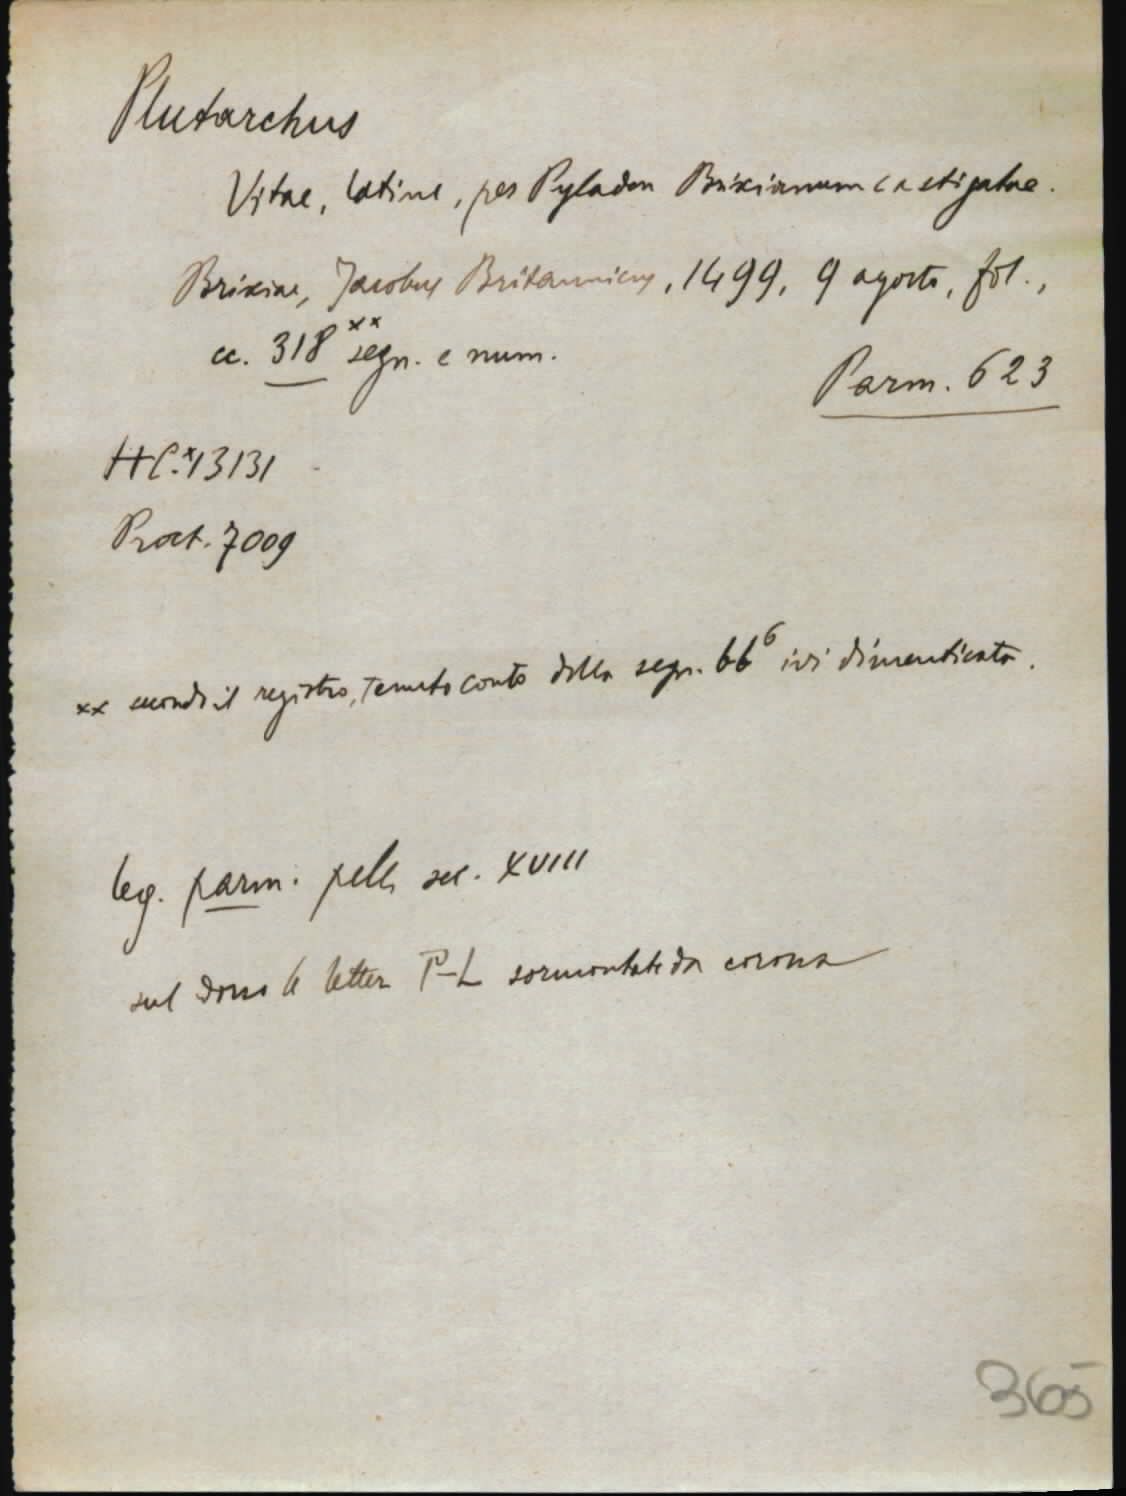 Plutarchus
Vitae, latine, per Pyladen Brixianum castigatae.
Brixiae, Jacobus Britannicus, 1499, 9 agosto, fol.,
cc. 318 xx segn. e num.
Parm. 623
HC.x13131
Proct. 7009
xx secondo il registro, tenuto conto della segn. bb6 ivi dimenticata.
leg. parm. pelle sec. XVIII
sul dorso le lettere P-L sormontate da corona
365